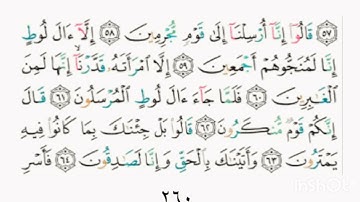 ٥٧ قَالُوٓا۟ إِنَّآ أُرْسِلْنَآ إِلَىٰ قَوْمٍ مُّجْرِمِينَ ٥٨ إِلَّآ ءَالَ لُوطٍ
إِنَّا لَمُنَجُّوهُمْ أَجْمَعِينَ ٥٩ إِلَّا ٱمْرَأَتَهُۥ قَدَّرْنَآ ۙ إِنَّهَا لَمِنَ
ٱلْغَـٰبِرِينَ ٦٠ فَلَمَّا جَآءَ ءَالَ لُوطٍ ٱلْمُرْسَلُونَ ٦١ قَالَ
إِنَّكُمْ قَوْمٌ مُّنكَرُونَ ٦٢ قَالُوا۟ بَلْ جِئْنَـٰكَ بِمَا كَانُوا۟ فِيهِ
يَمْتَرُونَ ٦٣ وَأَتَيْنَـٰكَ بِٱلْحَقِّ وَإِنَّا لَصَـٰدِقُونَ ٦٤ فَأَسْرِ
٢٦٠